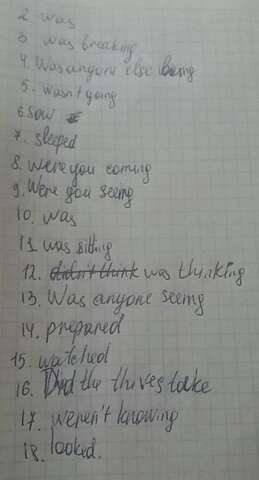 2. was
3. was breaking
4. Was anyone else being
5. wasn't going
6. Saw
7. sleeped
8. Were you coming
9. Were you seeing
10. was
11. was sitting
12. didn't think was thinking
13. Was anyone seeing
14. prepared
15. watched
16. Did the thives take
17. weren't knowing
18. looked.